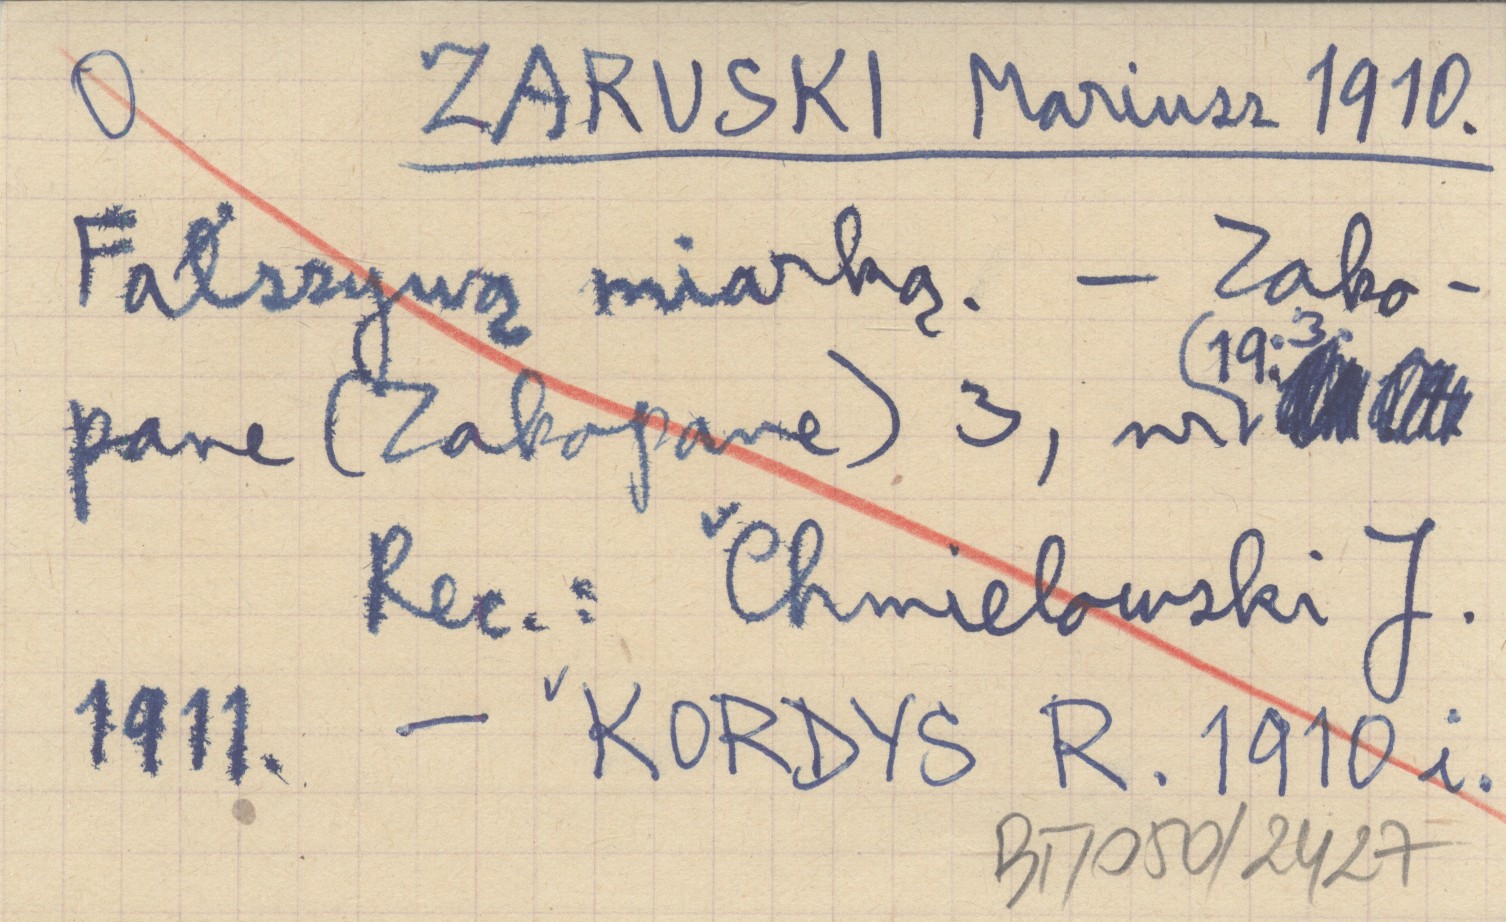 O ZARUSKI Mariusz 1910.
Fałszywą miarką. – Zako-
(19.3.
pane (Zakopane) 3, nr
Rec.: Chmielowski J.
1911. – KORDYS R. 1910 i.
BT/050/2427